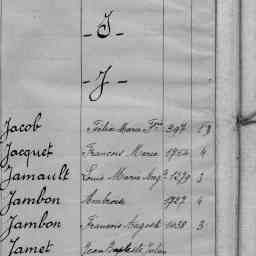 - I -
- J -
Jacob Félix Marie Fçois 397
Jacquet François Marie 1724 4
Jamault Louis Marie Aug. 1279 3
Jambon Ambroise 1727 4
Jambon François Auguste 1438 3
Jamet Jean Baptiste Julien